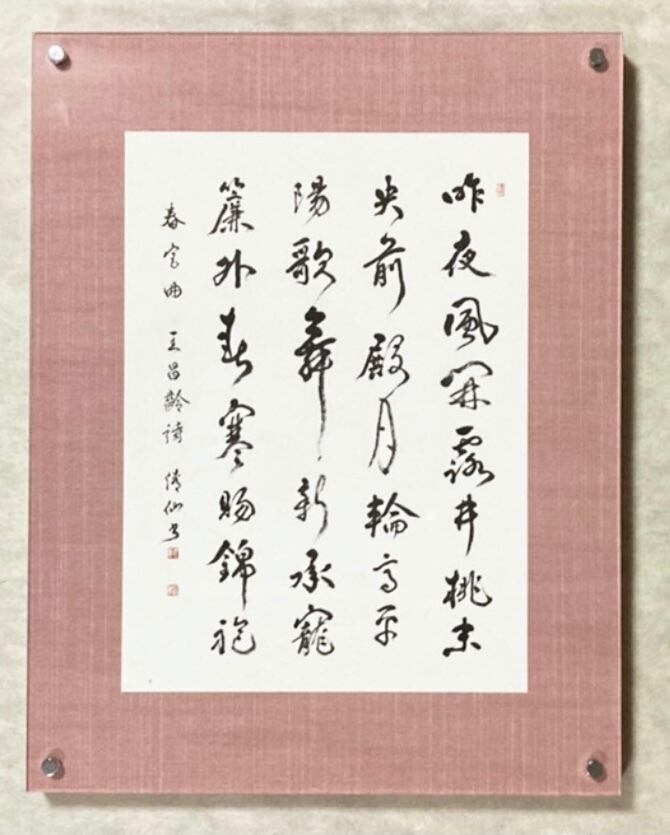 昨夜風開露井桃未
央前殿月輪高平
陽歌舞新承寵
簾外春寒賜錦袍
春宮曲 王昌齡詩 仙书